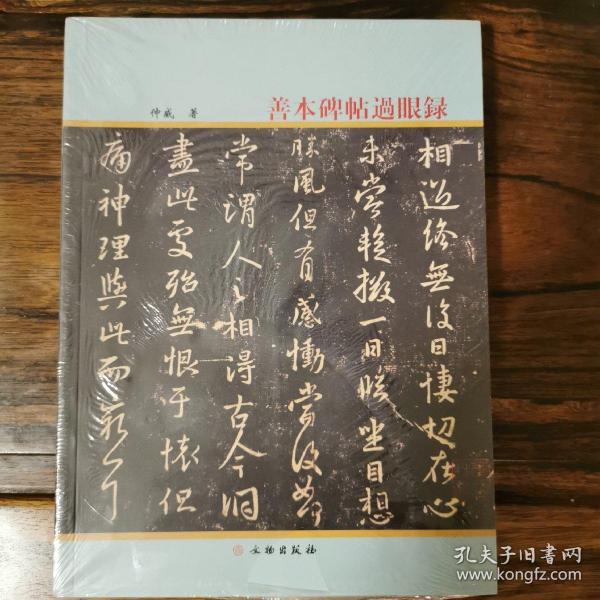 仲威 著
善本碑帖過眼録
相過終無復日悽切在心
未嘗暫撥一日臨坐目想
勝風但有感慟當復如何
常謂人之相得古今洞
盡此處殆無恨于懷但
痛神理與此而窮耳
文物出版社
孔夫子旧书网
www.kongfz.com